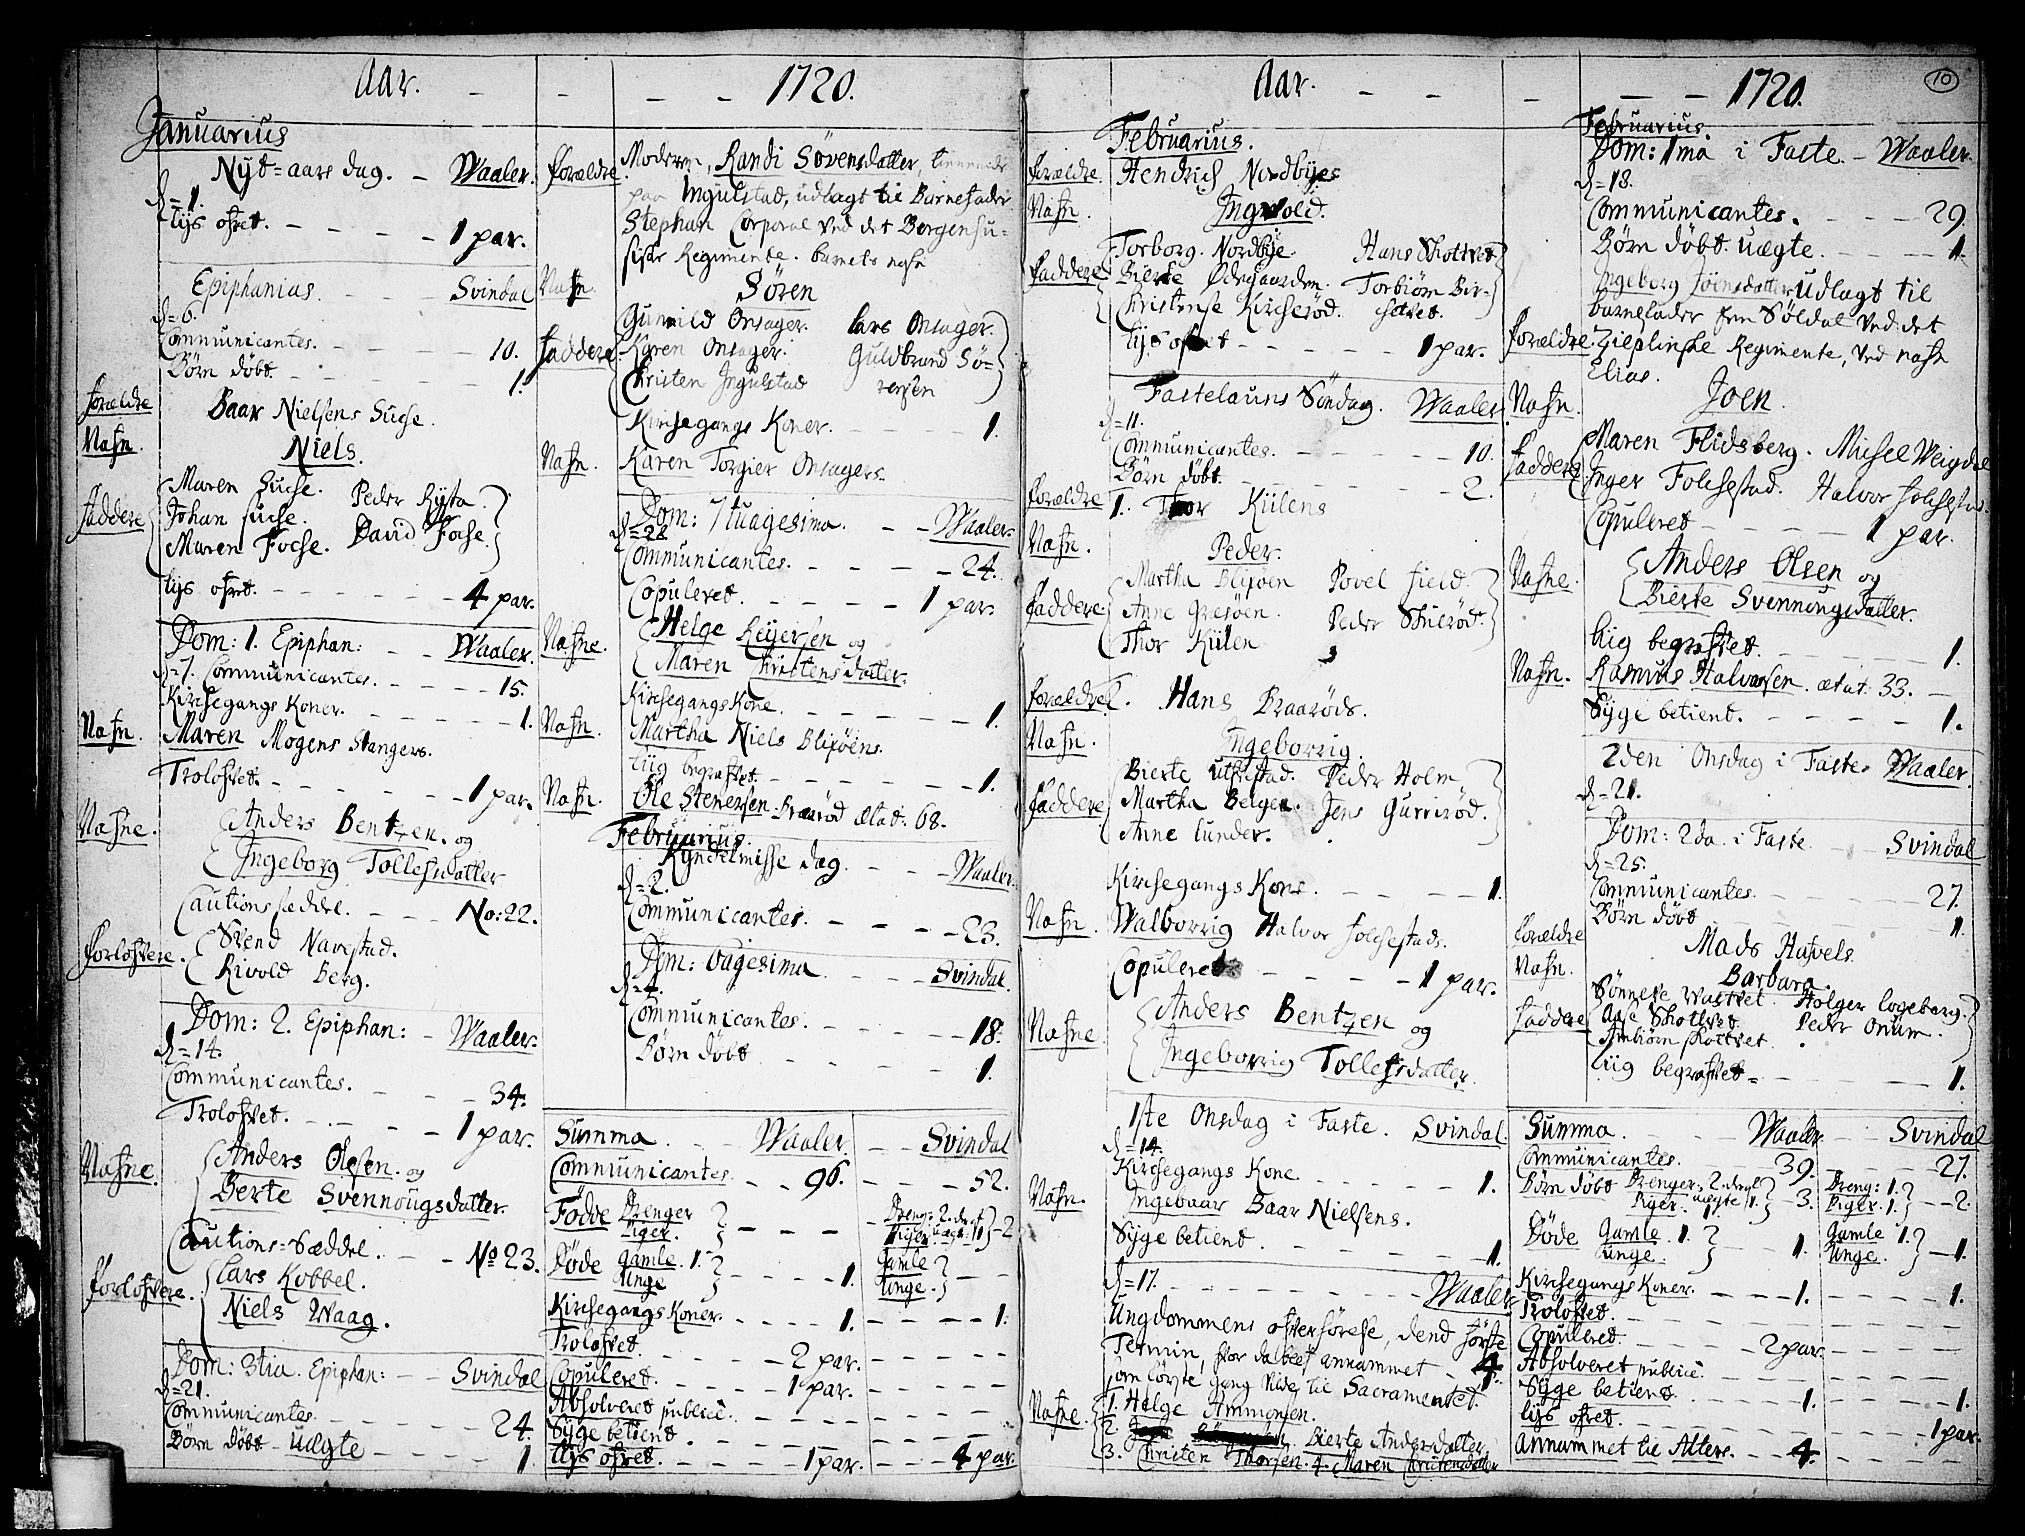 Aar. 1720.
Januarius
Nyt-aars dag. Waaler.
d=1.
Lys ofret. 1 par.
Epiphanias. Svindal
d=6.
Communicantes. 10.
Börn döbt. 1.
Forældre Baar Nielsens Suchse.
Nafn. Niels.
Faddere Maren Suchse. Peder Rÿsta.
Johan Suchse. David Fochse.
Maren Fochse.
Lys ofret. 4 par.
Dom: 1. Epiphan: Waaler.
d=7. Communicantes. 15.
Kirchegangs Koner. 1.
Nafn. Maren Mogens Stangers.
Trolofvet. 1 par.
Nafne. Anders Bentzen. og
Ingeborg Tollefsdatter
Cautions seddel. No: 22.
Forlofvere. Svend Navestad.
Rivold Berg.
Dom: 2. Epiphan: Waaler.
d=14.
Communicantes. 34.
Trolofvet. 1 par.
Nafne. Anders Olesen. og
Berte Svennougsdatter.
Cautions-Sæddel. No 23.
Forlofvere. Lars Kobbel.
Niels Waag.
Dom: 3tia. Epiphan: Svindal
d=21.
Communicantes. 24.
Börn döbt Uægte 1.
Forældre. Moderen, Randi Sövensdatter, tienende
paa Ingulstad, udlagt til Barnefader
Stephan Corporal ved det Bergenhu-
siske Regimente. barnets nafn
Nafn. Sören
Faddere Gunnild Onsager. Lars Onsager.
Karen Onsager. Guldbrand Sö-
Christen Ingulstad rensen
Kirchegangs Koner. 1.
Nafn. Karen Torgier Onsagers.
Dom: 7tuagesima. Waaler.
d=28
Communicantes. 24.
Copuleret. 1 par.
Nafne. Helge Reÿersen og
Maren Christensdatter.
Kirchegangs Kone. 1.
Nafn. Martha Niels Blixöens.
Liig begrafvet. 1.
Nafn. Ole Stenersen Braaröd ætat: 68.
Februarius.
Kyndelmisse dag. Waaler.
d=2.
Communicantes. 23.
Dom: 6agesima. Svindal.
d=4.
Communicantes. 18.
Börn döbt 1.
Summa. Waaler. Svindal
Communicantes. 96. 52.
Födde Drenger Dreng: 2. 2
Piger. Piger
Döde Gamle. 1. 1. Gamle
Unge Unge.
Kirchegangs Koner. 1. 1.
Trolofvet. 2 par.
Copuleret. 1 par.
Absolveret publicè.
Syge betient
Lys ofret. 1 par. 4 par.
Aar. 1720. 10
Februarius.
Forældre. Hendrich Nordbÿes
Nafn. Ingvold.
Faddere Torborg Nordbÿe. Hans Skottvet
Bierte Ödegaarden. Torbiörn Bir-
Christense Kircheröd. chevet.
Lys ofret 1 par.
Fastelauns Söndag. Waaler
d=11.
Communicantes. 10.
Börn döbt. 2.
Forældre 1. Thor Kiilens
Nafn. Peder.
Faddere Martha Blixöen Povel Field.
Anne Gresöen. Peder Skieröd.
Thor Kiilen
Forældre 2. Hans Braaröds.
Nafn. Ingeborrig
Faddere Bierte Uthstad. Peder Holm
Martha Berger. Jens Gurriröd.
Anne Lunder.
Kirchegangs Kone. 1.
Nafn. Walborrig Halvor Folchestads.
Copuleret 1 par.
Nafne Anders Bentzen og
Ingeborrig Tollefsdatter.
1ste Onsdag i Faste. Svindal
d=14.
Kirchegangs Kone 1.
Nafn. Ingebaar Baar Nielsens.
Syge betient. 1.
d=17. Waaler
Ungdommens ofverhörelse, dend förste
Termin, hvor da blef annammet 4
som förste gang vilde til Sacramentet.
Nafne 1. Helge Ammonsen.
2. Bierte Andersdatter
3. Christen Thorsen. 4. Maren Christensdatter
Februarius.
Dom: 1ma i Faste. Waaler.
d=18.
Communicantes. 29.
Börn döbt uægte. 1.
Forældre. Ingeborg Joensdatter udlagt til
barnefader een Söldat ved det
Zieplinske Regimente, ved nafn
Elias.
Nafn. Joen.
Faddere Maren Flidsberg. Michel Weigdal
Inger Folchestad. Halvor Folchestad.
Copuleret 1 par.
Nafne. Anders Olsen og
Bierte Svennungsdatter.
Liig begrafvet. 1.
Nafn. Rasmus Halvorsen ætat. 33.
Syge betient. 1.
2den Onsdag i Faste Waaler.
d=21.
Dom: 2da. i Faste. Svindal
d=25.
Communicantes. 27.
Börn döbt 1.
Forældre Mads Hafvels.
Nafn. Barbara.
Faddere Rönneve Wastvet. Holger Logeberg.
Aase Skottvet. Peder Onum.
Anbiörn Skottvet.
Liig begrafvet. 1.
Summa. Waaler Svindal
Communicantes. 39. 27.
Börn döbt Drenger. 2. 3. Dreng: 1. 2.
Piger. uægte 1. Piger. 1.
Döde Gamle. 1. 1. Gamle 1. 1.
Unge. Unge.
Kirchegangs Koner. 1. 1.
Trolofvet.
Copuleret. 2 par.
Absolveret publicè.
Syge betient. 1. 1.
Lys ofret. 1 par.
Annammet til Alters. 4.